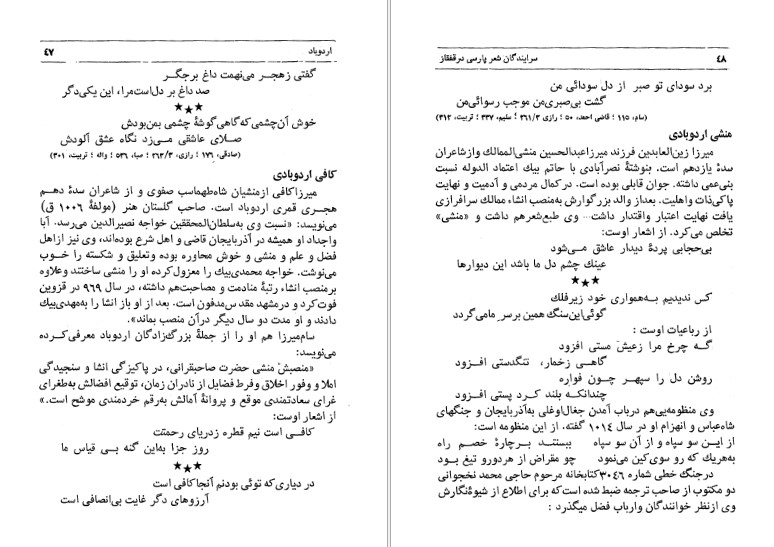 اردوباد
٤٧
گفتی زهجر می‌نهمت داغ برجگر
صد داغ بر دل‌است‌مرا، این یکی‌دگر
★★★
خوش آن‌چشمی‌که‌گاهی گوشهٔ چشمی بمن‌بودش
صلای عاشقی می‌زد نگاه عشق آلودش
(صادقی، ١٧٦؛ رازی، ٢٦٣/٣؛ صبا، ٥٣٦؛ واله ؛ تربیت، ٣٠١)
کافی اردوبادی
میرزاکافی ازمنشیان شاه‌طهماسب صفوی و از شاعران سدهٔ دهم
هجری قمری اردوباد است. صاحب گلستان هنر (مولفهٔ ١٠٠٦ ق)
می‌نویسد: «نسبت وی به‌سلطان‌المحققین خواجه نصیرالدین می‌رسد. آبا
واجداد او همیشه در آذربایجان قاضی و اهل شرع بوده‌اند، وی نیز ازاهل
فضل و علم و منشی و خوش محاوره بوده وتعلیق و شکسته را خوب
می‌نوشت. خواجه محمدی‌بیك را معزول‌کرده او را منشی ساختند وعلاوه
برمنصب انشاء رتبهٔ منادمت و مصاحبت‌هم داشته، در سال ٩٦٩ در قزوین
فوت‌کرد و درمشهد مقدس‌مدفون است. بعد از او باز انشا را به‌مهدی‌بیك
دادند و او مدت دو سال دیگر درآن منصب بماند».
سام‌میرزا هم او را از جملهٔ بزرگ‌زادگان اردوباد معرفی‌کرده
می‌نویسد:
«منصبش منشی حضرت صاحبقرانی، در پاکیزگی انشا و سنجیدگی
املا و وفور اخلاق وفرط فضایل از نادران زمان، توقیع افضالش به‌طغرای
غرای سعادتمندی موقع و پروانهٔ آمالش به‌رقم خردمندی موشح است.»
از اشعار اوست:
کافی است نیم قطره زدریای رحمتت
روز جزا به‌این گنه بی قیاس ما
★★★
در دیاری‌که توئی بودنم آنجاکافی است
آرزوهای دگر غایت بی‌انصافی است
سرایندگان شعر پارسی درقفقاز
٤٨
برد سودای تو صبر از دل سودائی من
گشت بی‌صبری‌من موجب رسوائی‌من
(سام، ١١٥؛ قاضی احمد، ٥٠؛ رازی ٢٦١/٣؛ سلیم، ٣٣٧؛ تربیت، ٣١٢)
منشی اردوبادی
میرزا زین‌العابدین فرزند میرزاعبدالحسین منشی‌الممالك وازشاعران
سدهٔ یازدهم است. بنوشتهٔ نصرآبادی با حاتم بیك اعتماد الدوله نسبت
بنی‌عمی داشته. جوان قابلی بوده است. درکمال مردمی و آدمیت و نهایت
پاکی‌ذات واهلیت. بعداز والد بزرگوارش به‌منصب انشاء ممالك سرافرازی
یافت نهایت اعتبار واقتدار داشت... وی طبع‌شعرهم داشت و «منشی»
تخلص می‌کرد. از اشعار اوست:
بی‌حجابی پردهٔ دیدار عاشق می‌شود
عینك چشم دل ما باشد این دیوارها
★★★
کس ندیدیم به‌همواری خود زیرفلك
گوئی‌این‌سنگ همین برسر مامی‌گردد
از رباعیات اوست :
گه چرخ مرا زعیش مستی افزود
گاهی زخمار، تنگدستی افزود
روشن دل را سپهر چون فواره
چندانکه بلند کرد پستی افزود
وی منظومه‌یی‌هم درباب آمدن جغال‌اوغلی به‌آذربایجان و جنگهای
شاه‌عباس و انهزام او در سال ١٠١٤ گفته. از این منظومه است:
از این سو سپاه و از آن سو سپاه ببستند برچارهٔ خصم راه
به‌هریك که رو سوی‌کین می‌نمود چو مقراض از هردورو تیغ بود
درجنگ خطی شماره ٣٠٤٦کتابخانه مرحوم حاجی محمد نخجوانی
دو مکتوب از صاحب ترجمه ضبط شده است‌که برای اطلاع از شیوهٔ‌نگارش
وی ازنظر خوانندگان وارباب فضل میگذرد :